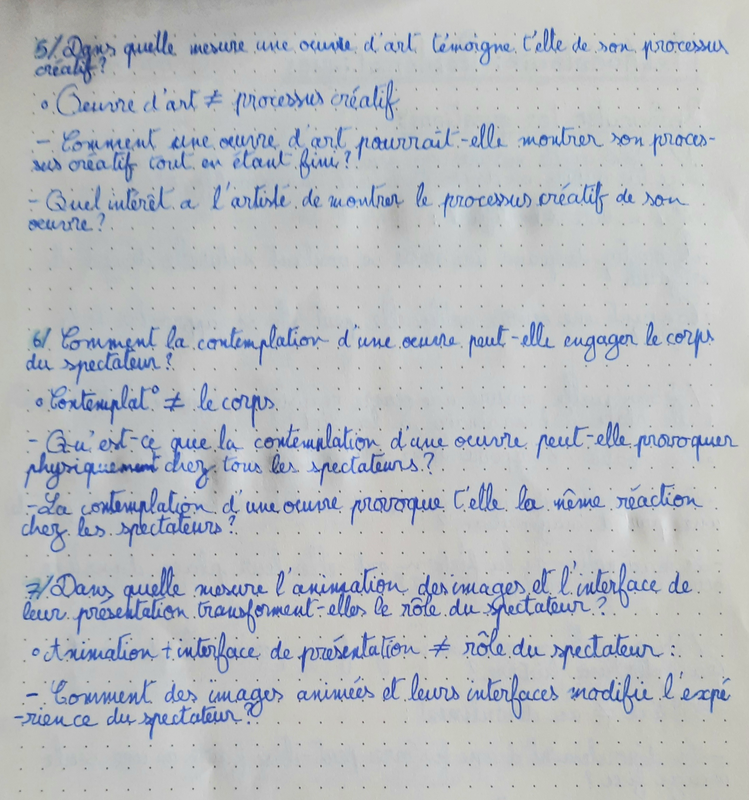 5/ Dans quelle mesure une oeuvre d'art témoigne t'elle de son processus
créatif ?
° Oeuvre d'art ≠ processus créatif
- Comment une oeuvre d'art pourrait-elle montrer son proces-
sus créatif tout en étant fini ?
- Quel intérêt a l'artiste de montrer le processus créatif de son
oeuvre ?
6/ Comment la contemplation d'une oeuvre peut-elle engager le corps
du spectateur ?
° Contemplat° ≠ le corps
- Qu'est-ce que la contemplation d'une oeuvre peut-elle provoquer
physiquement chez tous les spectateurs ?
- La contemplation d'une oeuvre provoque t'elle la même réaction
chez les spectateurs ?
7/ Dans quelle mesure l'animation des images et l'interface de
leur présentation transforment-elles le rôle du spectateur ?
° Animation + interface de présentation ≠ rôle du spectateur :
- Comment des images animées et leurs interfaces modifie l'expé
-rience du spectateur ?